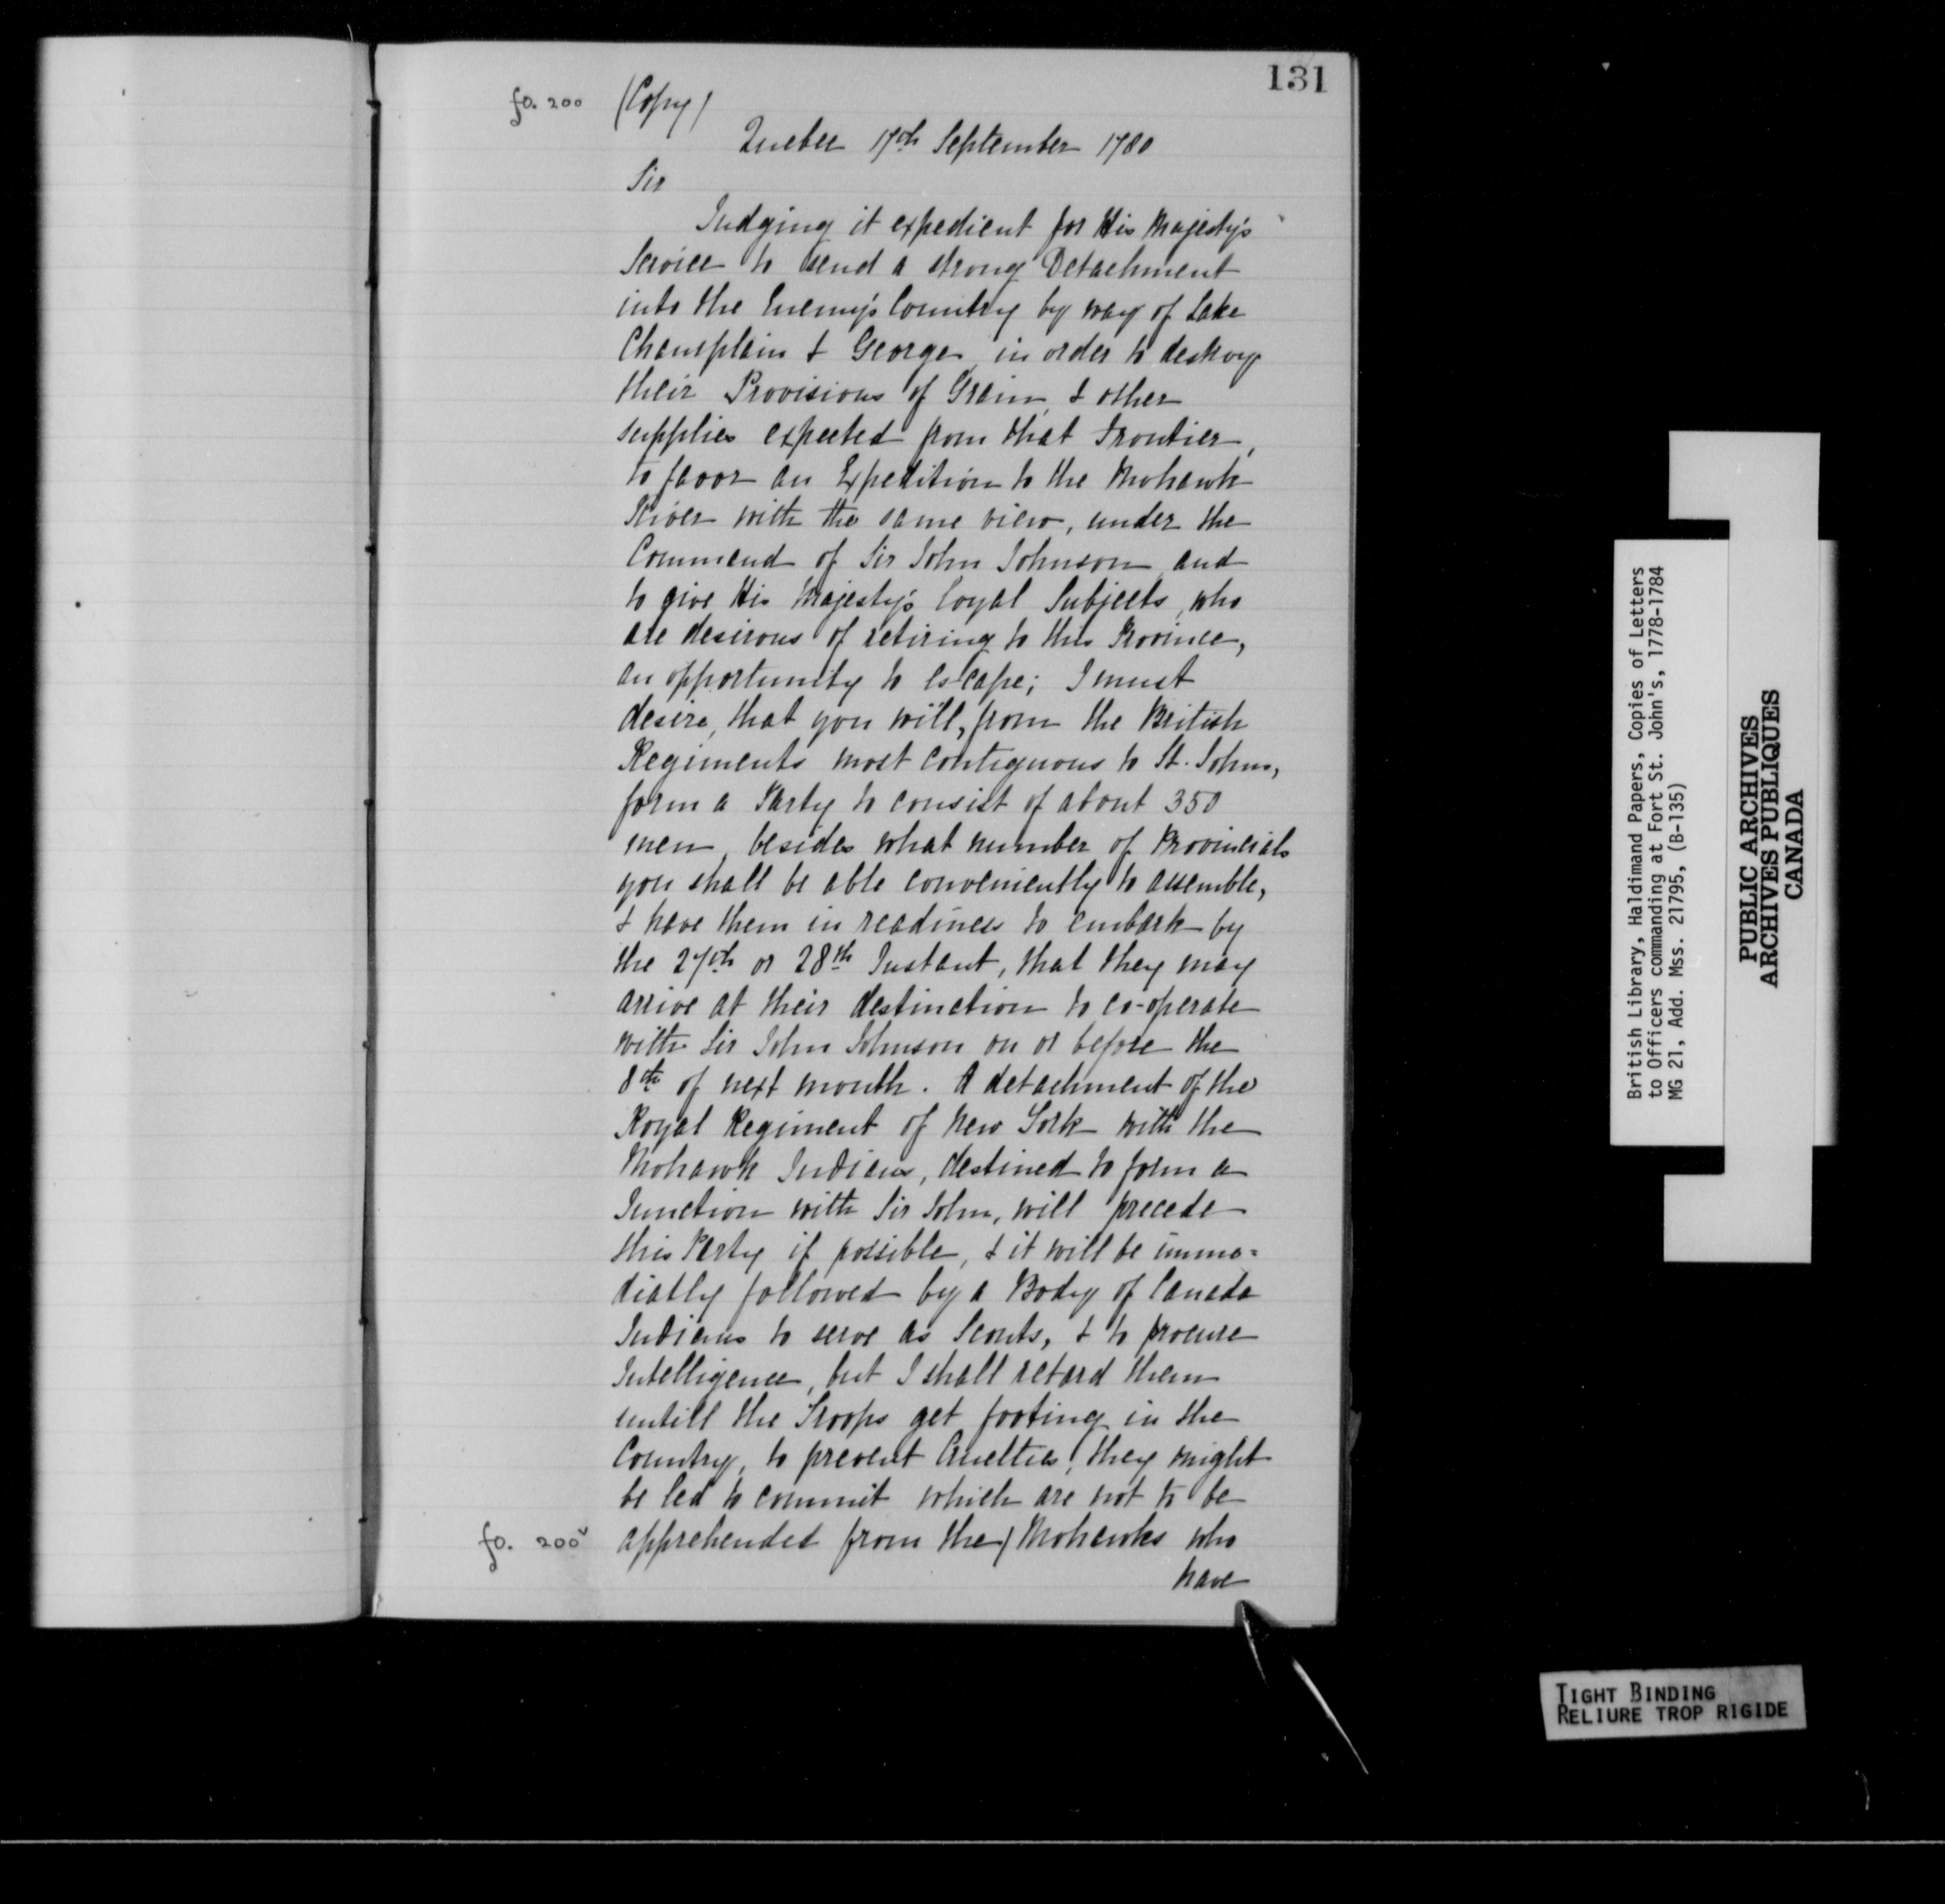 131
fo. 200 (Copy)
Quebec 17th September 1780
Sir
Judging it expedient for His Majesty's
Service to send a strong Detachment
into the Enemy's Country by way of Lake
Champlain & George, in order to destroy
their Provisions of Grain, & other
supplies expected from that Frontier,
to favor an Expedition to the Mohawk
River with the same view, under the
Command of Sir John Johnson, and
to give His Majesty's loyal Subjects, who
are desirous of retiring to this Province,
an opportunity to escape; I must
desire, that you will, from the British
Regiments most contiguous to St. Johns,
form a Party to consist of about 350
men, besides what number of Provincials
you shall be able conveniently to assemble,
& have them in readiness to embark by
the 27th or 28th Instant, that they may
arrive at their destinction to co-operate
with Sir John Johnson on or before the
8th of next month. A detachment of the
Royal Regiment of New York with the
Mohawk Indians, destined to form a
Junction with Sir John, will precede
this Party if possible, & it will be imme=
diatly followed by a Body of Canada
Indians to serve as Scouts, & to procure
Intelligence, but I shall retard them
untill the Troops get footing in the
Country, to prevent Cruelties, they might
be led to commit which are not to be
fo. 200v apprehended from the / Mohawks who
have
British Library, Haldimand Papers, Copies of Letters
to Officers commanding at Fort St. John's, 1778-1784
MG 21, Add. Mss. 21795, (B-135)
PUBLIC ARCHIVES
ARCHIVES PUBLIQUES
CANADA
TIGHT BINDING
RELIURE TROP RIGIDE